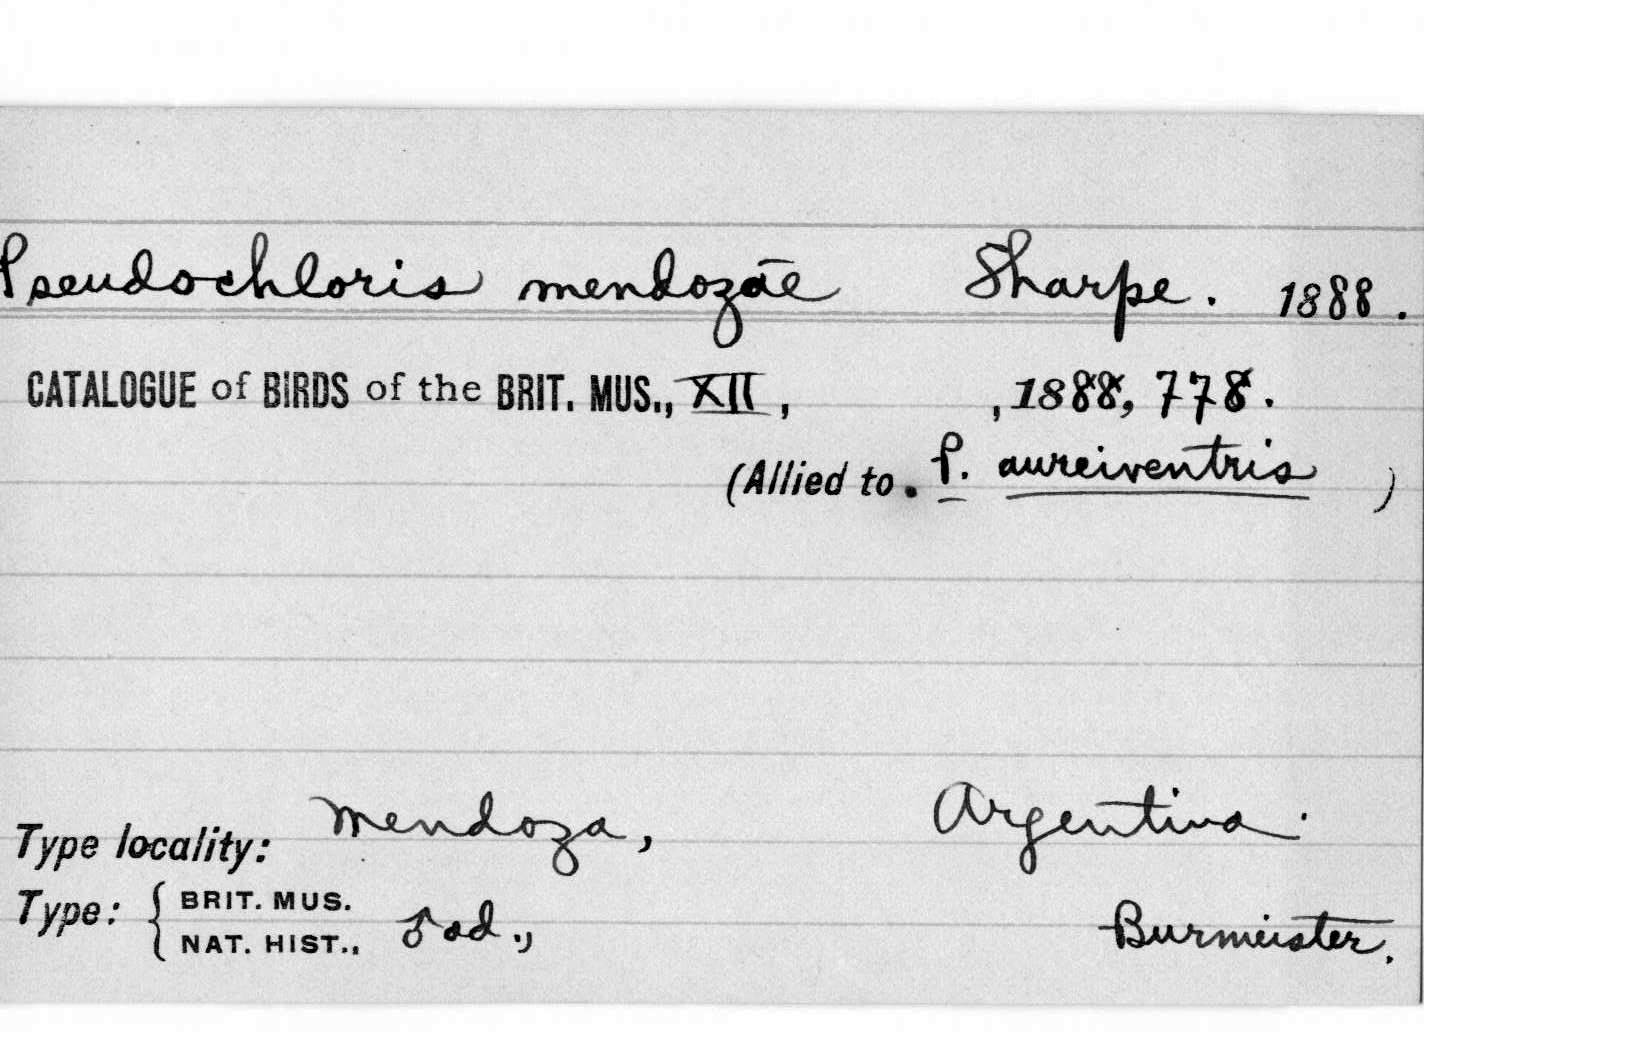 Pseudochloris mendozae Sharpe. 1888.
CATALOGUE of BIRDS of the BRIT. MUS., XII, , 1888, 778.
(Allied to. P. aureiventris )
Type locality: Mendoza, Argentina.
Type: { BRIT. MUS. NAT. HIST., ♂ ad., Burmeister.